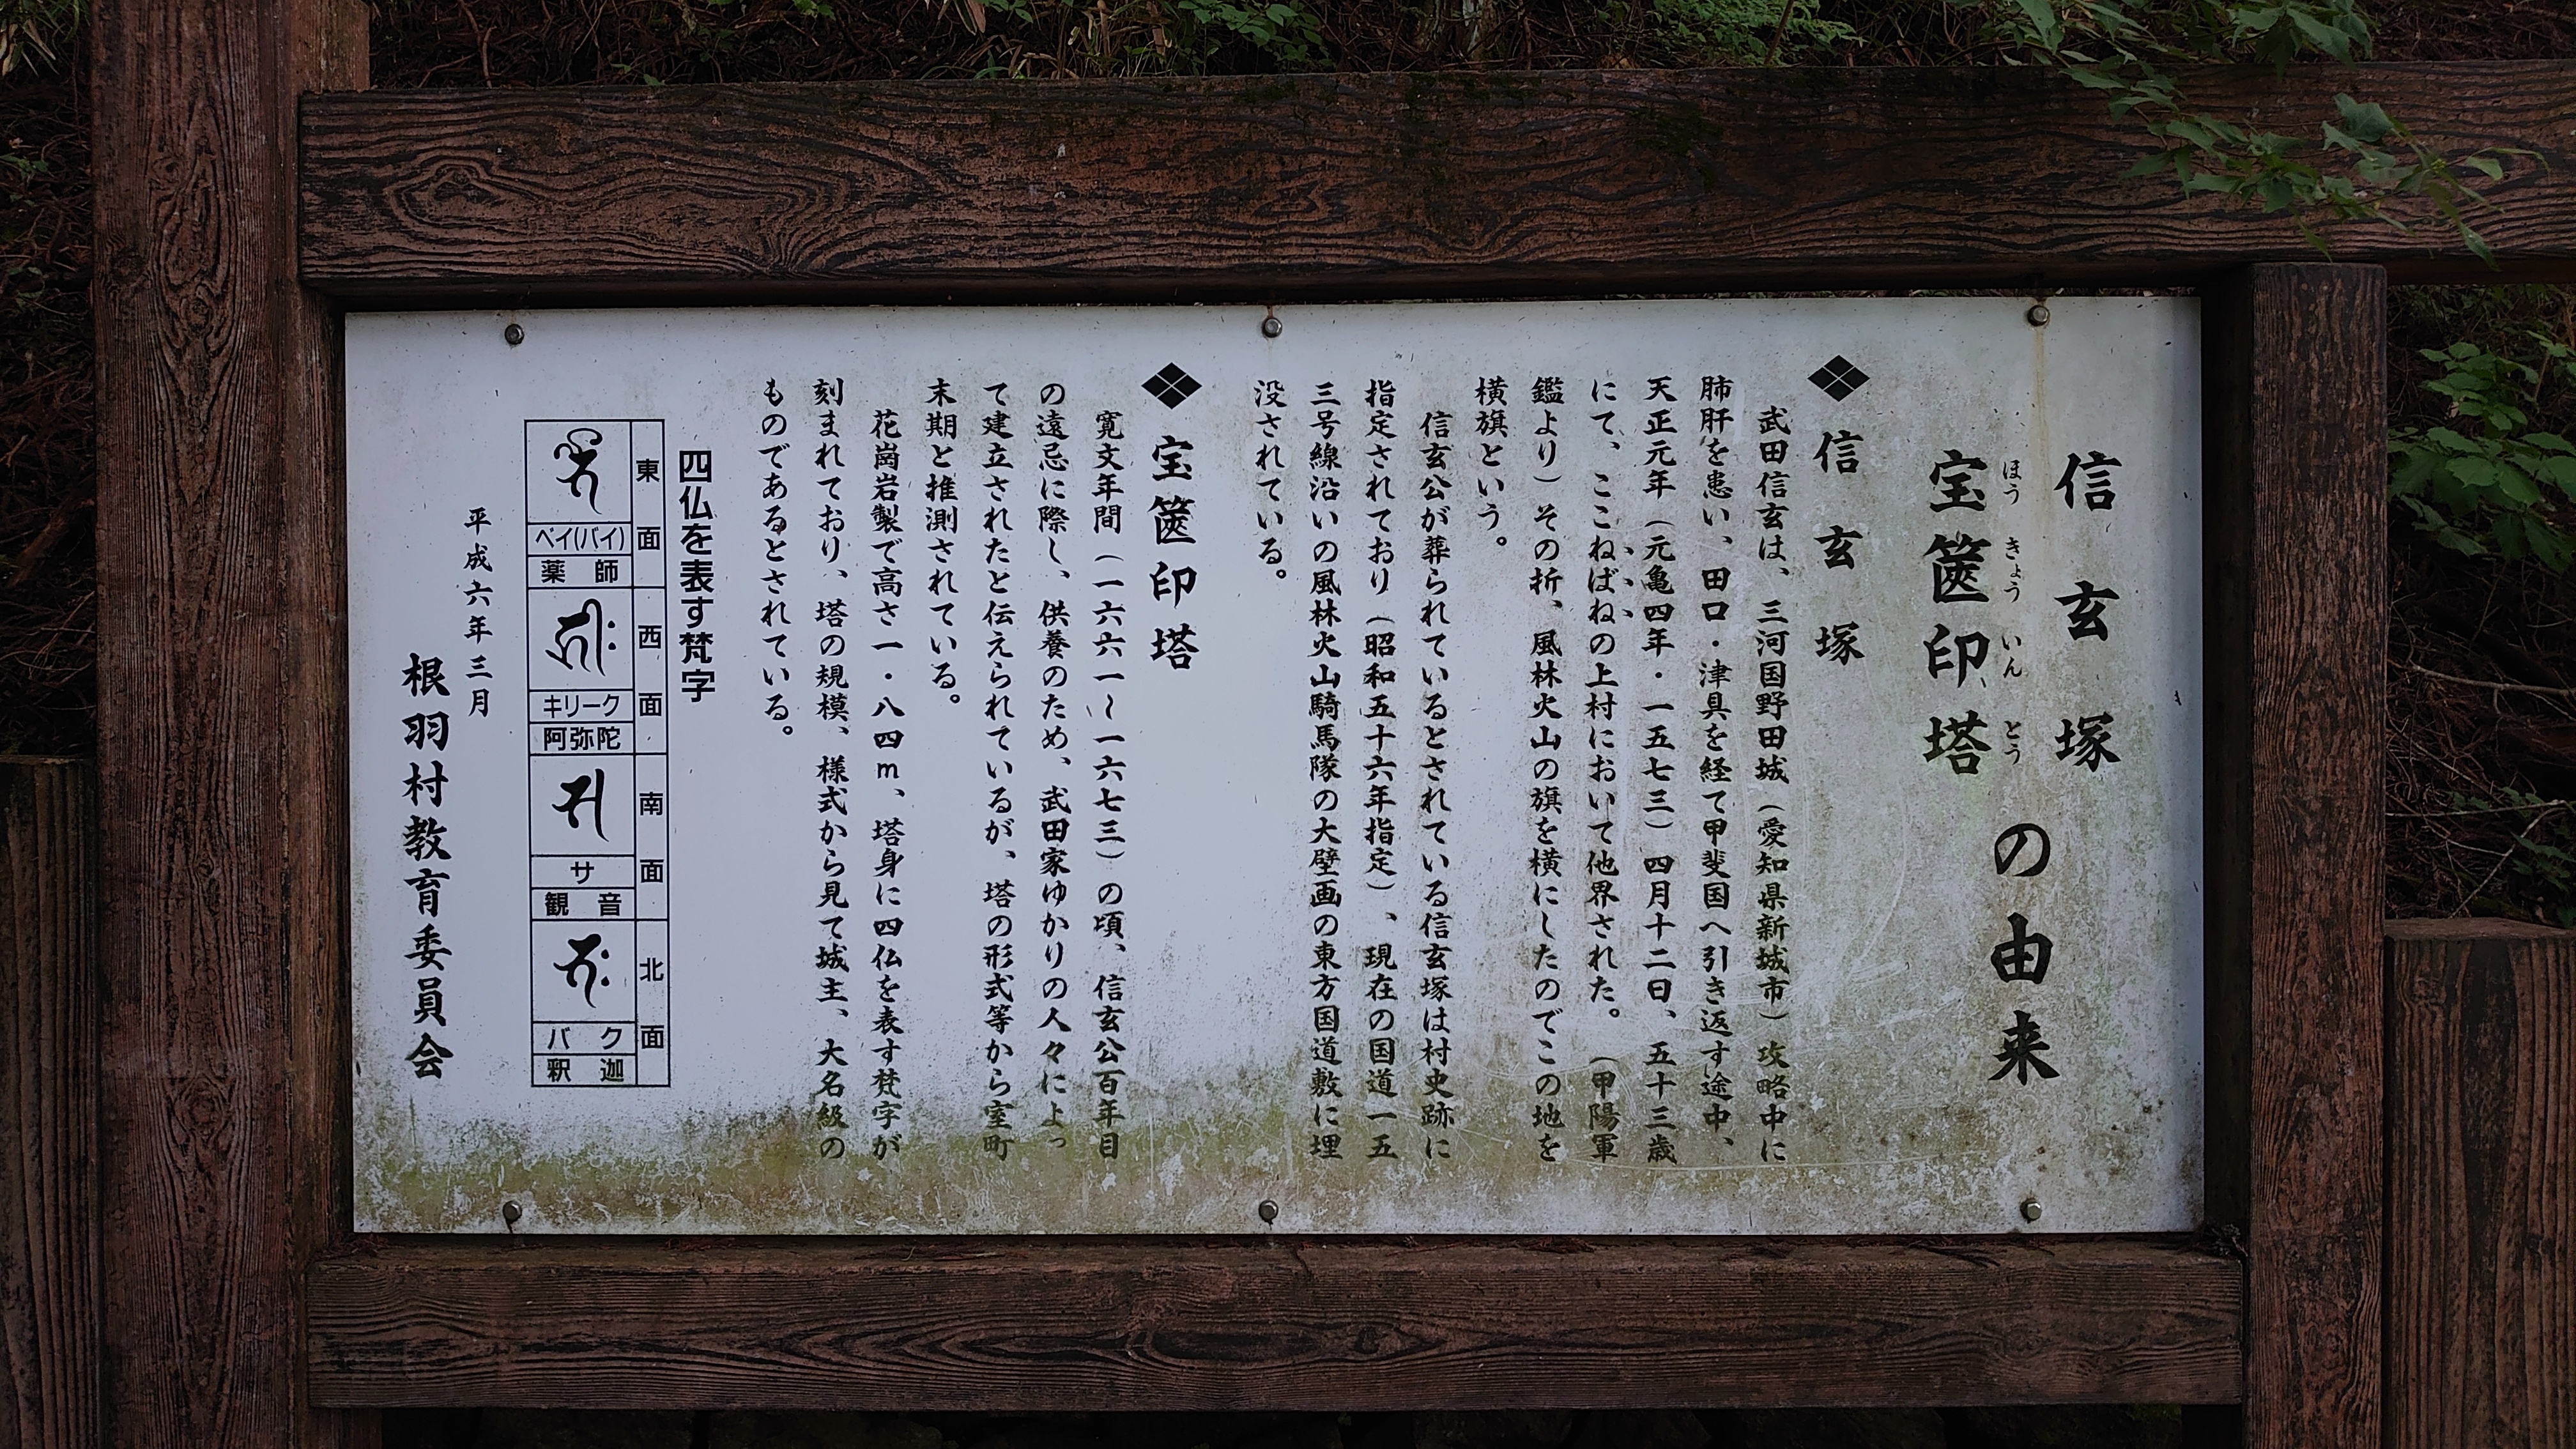 信玄塚
宝篋印塔
ほうきょういんとう
の由来
信玄塚
武田信玄は、三河国野田城（愛知県新城市）攻略中に
肺肝を患い、田口・津具を経て甲斐国へ引き返す途中、
天正元年（元亀四年・一五七三）四月十二日、五十三歳
にて、ここねばねの上村において他界された。（甲陽軍
鑑より）その折、風林火山の旗を横にしたのでこの地を
横旗という。
信玄公が葬られているとされている信玄塚は村史跡に
指定されており（昭和五十六年指定）、現在の国道一五
三号線沿いの風林火山騎馬隊の大壁画の東方国道敷に埋
没されている。
宝篋印塔
寛文年間（一六六一～一六七三）の頃、信玄公百年目
の遠忌に際し、供養のため、武田家ゆかりの人々によっ
て建立されたと伝えられているが、塔の形式等から室町
末期と推測されている。
花崗岩製で高さ一・八四m、塔身に四仏を表す梵字が
刻まれており、塔の規模、様式から見て城主、大名級の
ものであるとされている。
四仏を表す梵字
東面
ベイ(バイ)
薬師
西面
キリーク
阿弥陀
南面
サ
観音
北面
バク
釈迦
平成六年三月
根羽村教育委員会